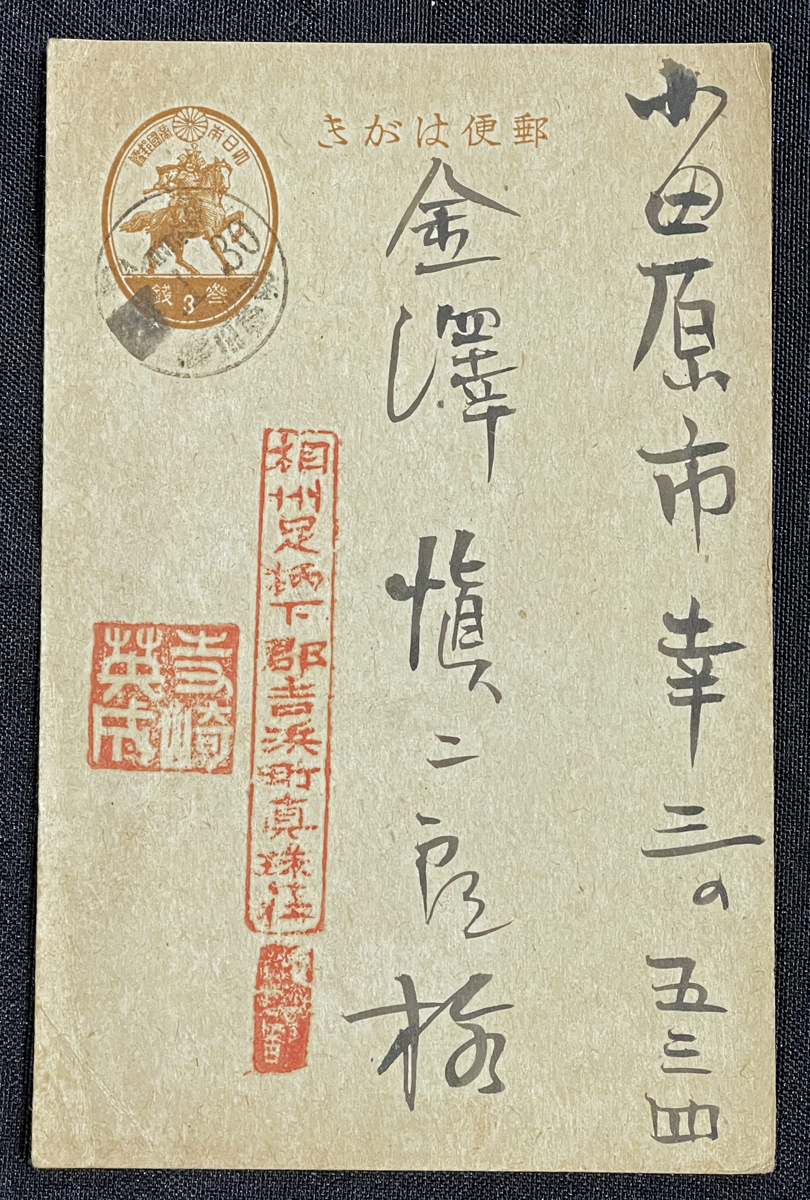 郵便はがき
大日本帝國郵便
参 3 銭
30
小田原市幸三の五三四
金澤慎二郎様
相州足柄下郡吉浜町真珠荘
寺崎
英成